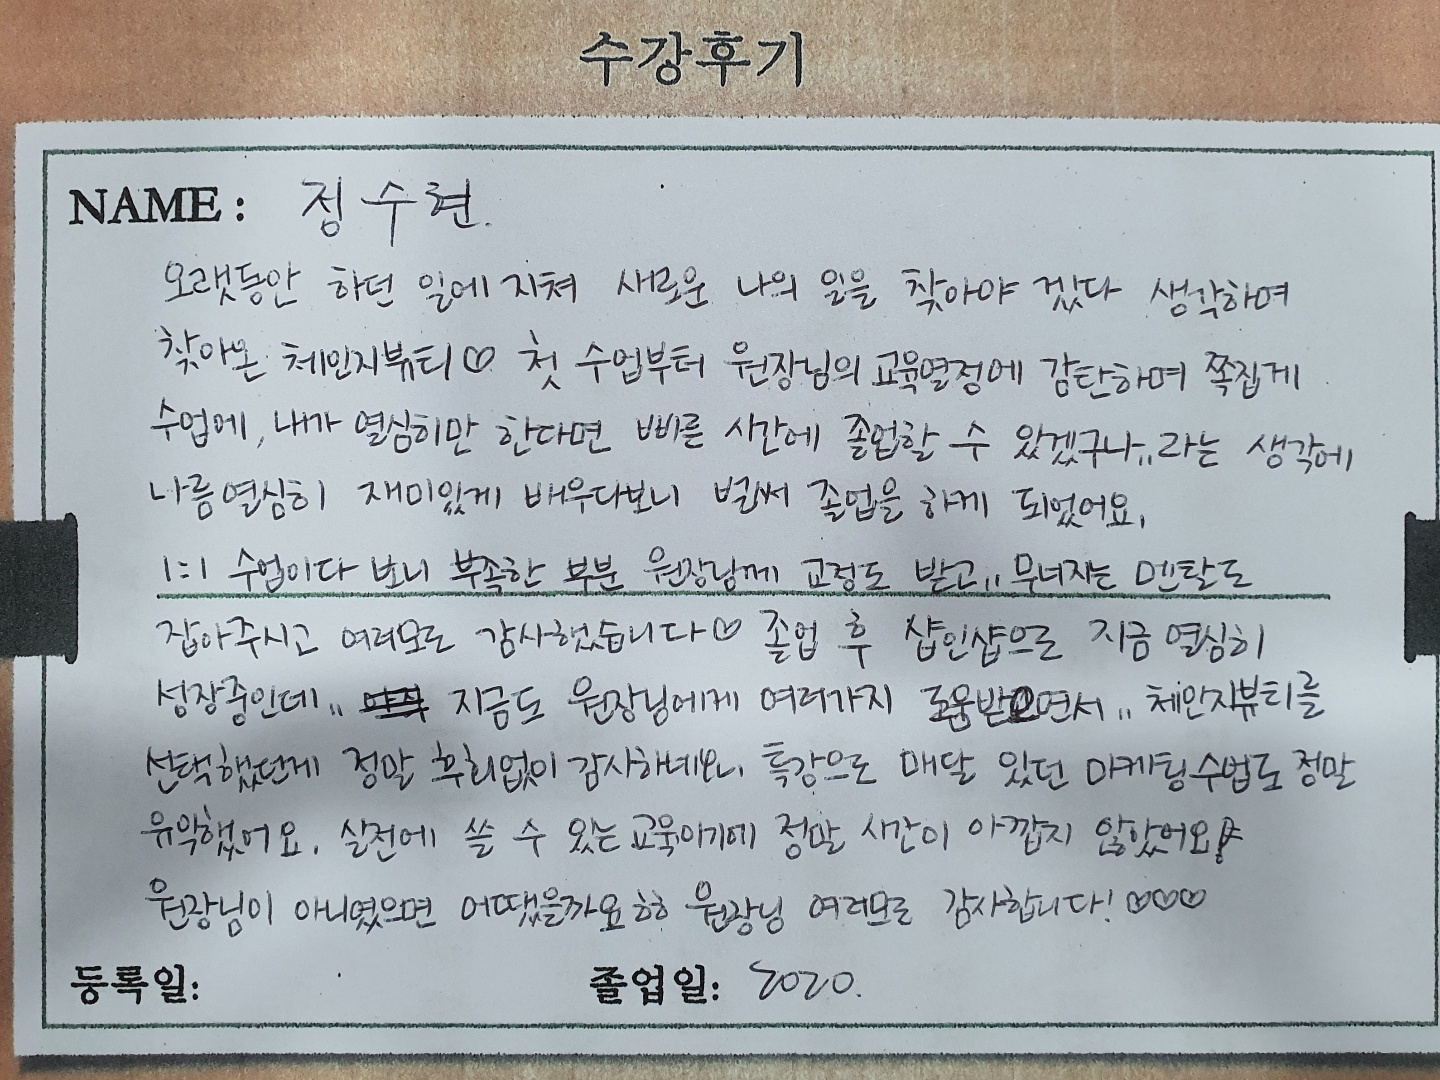 수강후기
NAME : 정수현.
오랫동안 하던 일에 지쳐 새로운 나의 일을 찾아야 겠다 생각하여
찾아온 체인지뷰티♡ 첫 수업부터 원장님의 교육열정에 감탄하며 쪽집게
수업에, 내가 열심히만 한다면 빠른 시간에 졸업할 수 있겠구나,,라는 생각에
나름 열심히 재미있게 배우다보니 벌써 졸업을 하게 되었어요,
1:1 수업이다 보니 부족한 부분 원장님께 교정도 받고,, 무너지는 멘탈도
잡아주시고 여러모로 감사했습니다♡ 졸업 후 샵인샵으로 지금 열심히
성장중인데,, 지금도 원장님에게 여러가지 도움받으면서,, 체인지뷰티를
선택했던게 정말 후회없이 감사하네요, 특강으로 매달 있던 마케팅수법도 정말
유악했어요. 실전에 쓸 수 있는 교육이기에 정말 시간이 아깝지 않았어요
원장님이 아니였으면 어땠을까요 ㅎㅎ 원장님 여러모로 감사합니다! ♡♡♡
등록일: 졸업일: 2020.